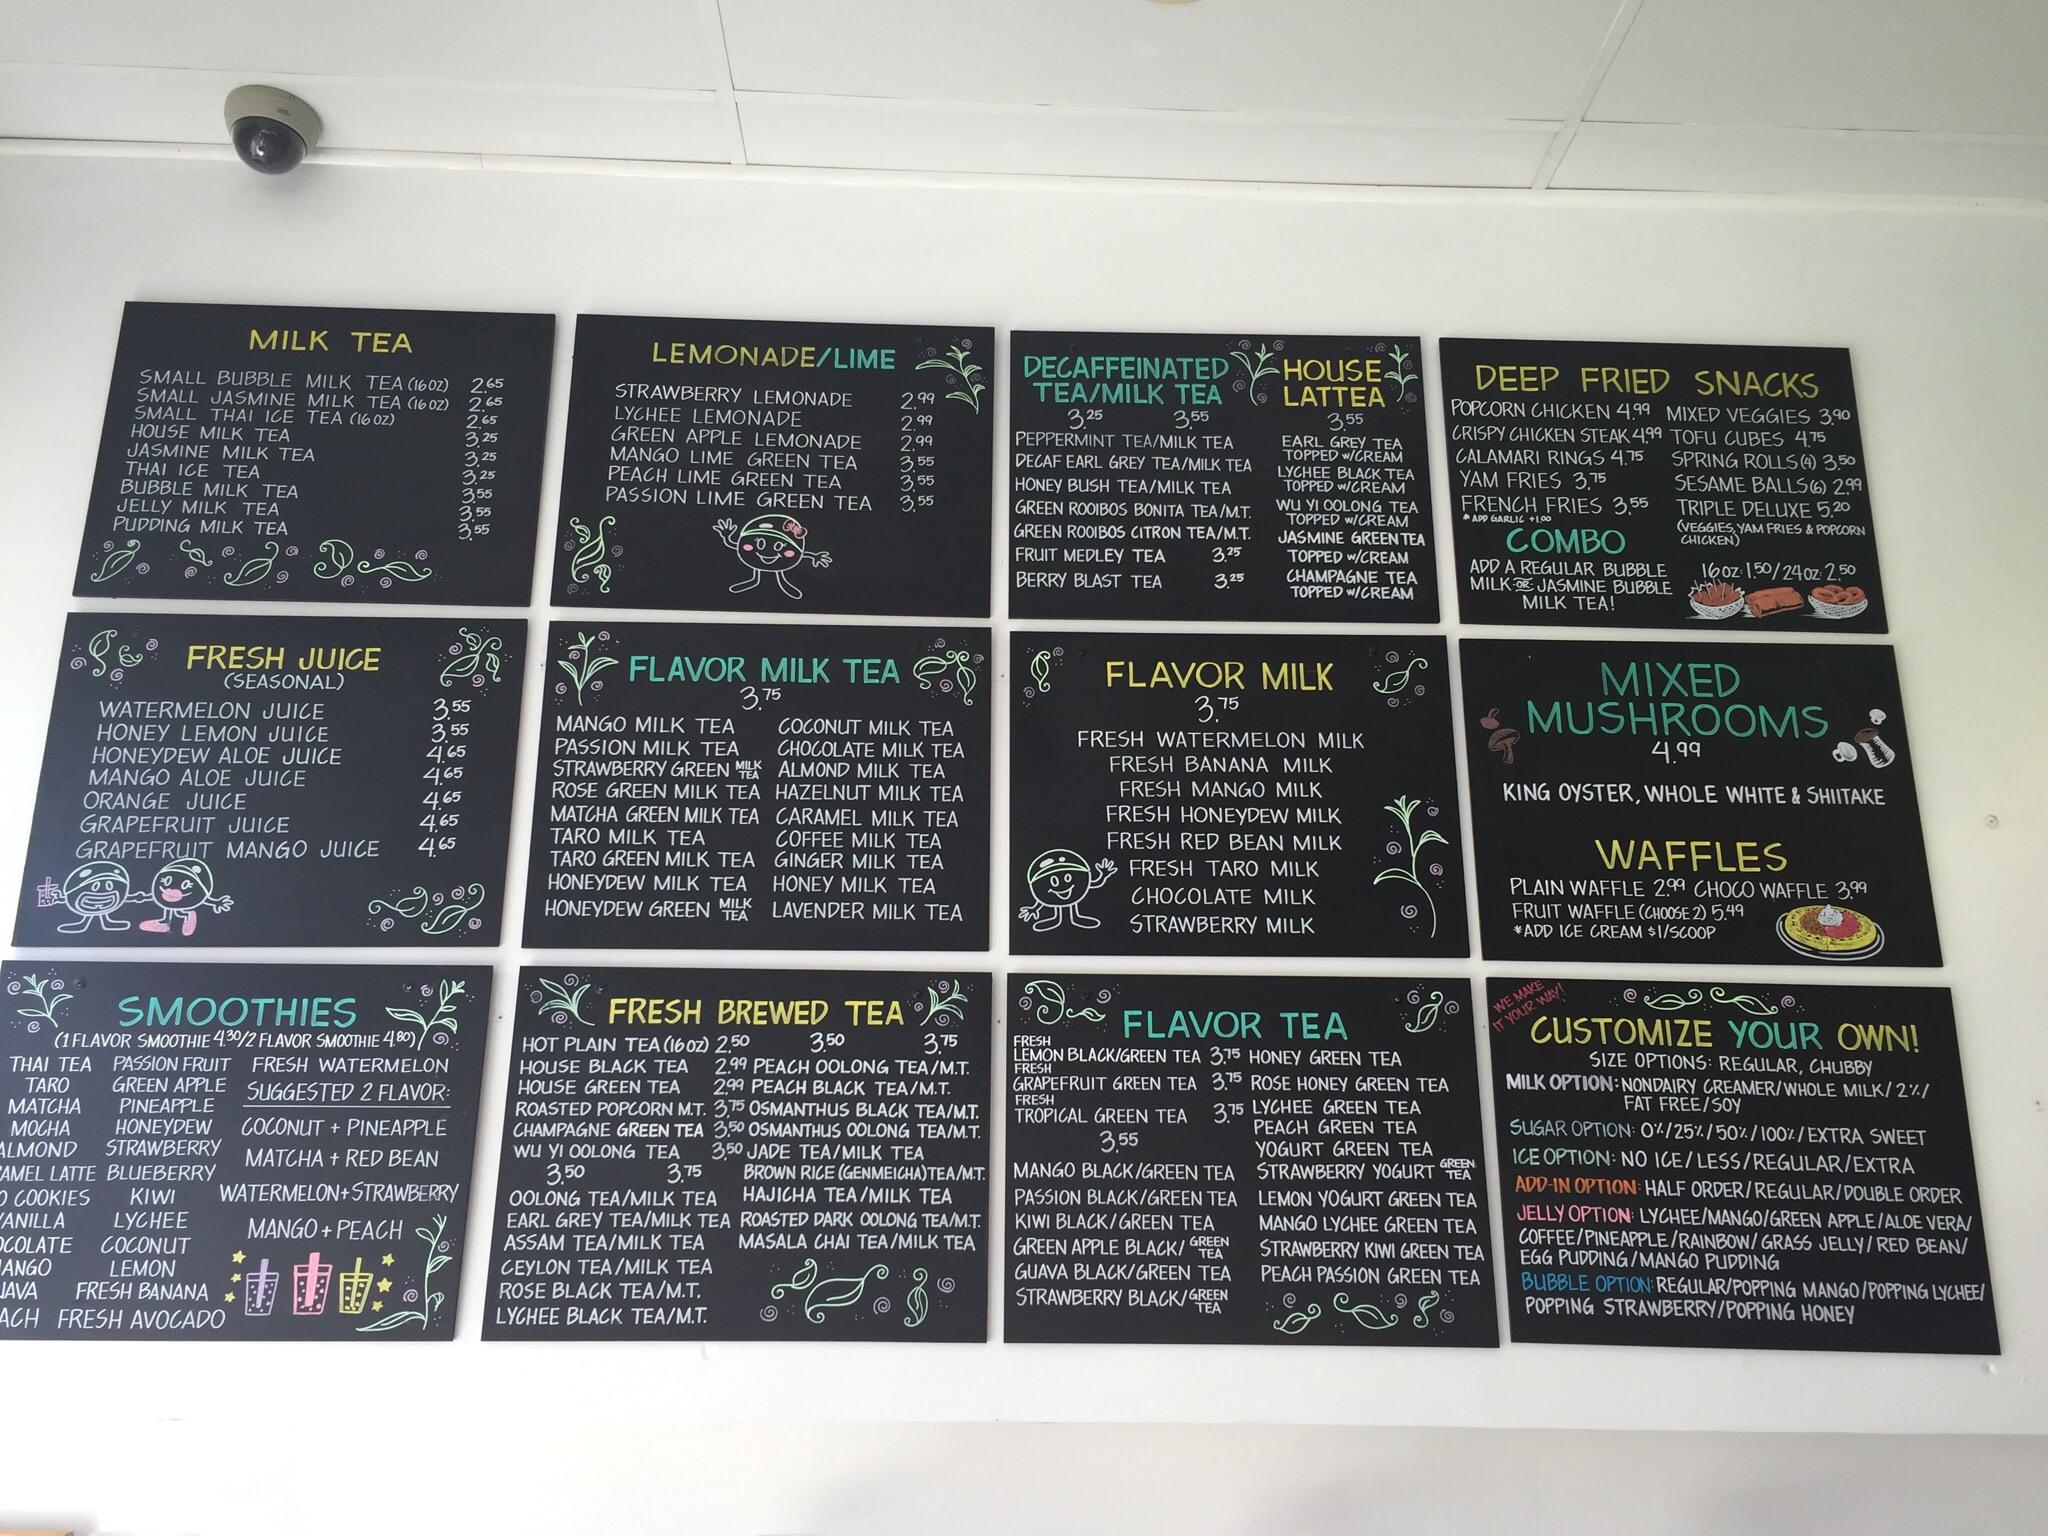 MILK TEA
SMALL BUBBLE MILK TEA (16 OZ) 2.65
SMALL JASMINE MILK TEA (16 OZ) 2.65
SMALL THAI ICE TEA (16 OZ) 2.65
HOUSE MILK TEA 3.25
JASMINE MILK TEA 3.25
THAI ICE TEA 3.25
BUBBLE MILK TEA 3.55
JELLY MILK TEA 3.55
PUDDING MILK TEA 3.55
LEMONADE/LIME
STRAWBERRY LEMONADE 2.99
LYCHEE LEMONADE 2.99
GREEN APPLE LEMONADE 2.99
MANGO LIME GREEN TEA 3.55
PEACH LIME GREEN TEA 3.55
PASSION LIME GREEN TEA 3.55
DECAFFEINATED
TEA/MILK TEA
3.25 3.55
PEPPERMINT TEA/MILK TEA
DECAF EARL GREY TEA/MILK TEA
HONEY BUSH TEA/MILK TEA
GREEN ROOIBOS BONITA TEA/M.T.
GREEN ROOIBOS CITRON TEA/M.T.
FRUIT MEDLEY TEA 3.25
BERRY BLAST TEA 3.25
HOUSE
LATTEA
3.55
EARL GREY TEA
TOPPED W/CREAM
LYCHEE BLACK TEA
TOPPED W/CREAM
WU YI OOLONG TEA
TOPPED W/CREAM
JASMINE GREEN TEA
TOPPED W/CREAM
CHAMPAGNE TEA
TOPPED W/CREAM
DEEP FRIED SNACKS
POPCORN CHICKEN 4.99 MIXED VEGGIES 3.90
CRISPY CHICKEN STEAK 4.99 TOFU CUBES 4.75
CALAMARI RINGS 4.75 SPRING ROLLS (4) 3.50
YAM FRIES 3.75 SESAME BALLS (6) 2.99
FRENCH FRIES 3.55 TRIPLE DELUXE 5.20
* ADD GARLIC +1.00 (VEGGIES, YAM FRIES & POPCORN
CHICKEN)
COMBO
ADD A REGULAR BUBBLE 16 OZ: 1.50/24 OZ: 2.50
MILK OR JASMINE BUBBLE
MILK TEA!
FRESH JUICE
(SEASONAL)
WATERMELON JUICE 3.55
HONEY LEMON JUICE 3.55
HONEYDEW ALOE JUICE 4.65
MANGO ALOE JUICE 4.65
ORANGE JUICE 4.65
GRAPEFRUIT JUICE 4.65
GRAPEFRUIT MANGO JUICE 4.65
FLAVOR MILK TEA
3.75
MANGO MILK TEA COCONUT MILK TEA
PASSION MILK TEA CHOCOLATE MILK TEA
STRAWBERRY GREEN MILK TEA ALMOND MILK TEA
ROSE GREEN MILK TEA HAZELNUT MILK TEA
MATCHA GREEN MILK TEA CARAMEL MILK TEA
TARO MILK TEA COFFEE MILK TEA
TARO GREEN MILK TEA GINGER MILK TEA
HONEYDEW MILK TEA HONEY MILK TEA
HONEYDEW GREEN MILK TEA LAVENDER MILK TEA
FLAVOR MILK
3.75
FRESH WATERMELON MILK
FRESH BANANA MILK
FRESH MANGO MILK
FRESH HONEYDEW MILK
FRESH RED BEAN MILK
FRESH TARO MILK
CHOCOLATE MILK
STRAWBERRY MILK
MIXED
MUSHROOMS
4.99
KING OYSTER, WHOLE WHITE & SHIITAKE
WAFFLES
PLAIN WAFFLE 2.99 CHOCO WAFFLE 3.99
FRUIT WAFFLE (CHOOSE 2) 5.49
*ADD ICE CREAM $1/SCOOP
SMOOTHIES
(1 FLAVOR SMOOTHIE 4.30/2 FLAVOR SMOOTHIE 4.80)
THAI TEA PASSION FRUIT FRESH WATERMELON
TARO GREEN APPLE SUGGESTED 2 FLAVOR:
MATCHA PINEAPPLE
MOCHA HONEYDEW COCONUT + PINEAPPLE
ALMOND STRAWBERRY MATCHA + RED BEAN
AMEL LATTE BLUEBERRY
O COOKIES KIWI WATERMELON+STRAWBERRY
VANILLA LYCHEE MANGO + PEACH
OCOLATE COCONUT
ANGO LEMON
UAVA FRESH BANANA
ACH FRESH AVOCADO
FRESH BREWED TEA
HOT PLAIN TEA (16 OZ) 2.50 3.50 3.75
HOUSE BLACK TEA 2.99 PEACH OOLONG TEA/M.T.
HOUSE GREEN TEA 2.99 PEACH BLACK TEA/M.T.
ROASTED POPCORN M.T. 3.75 OSMANTHUS BLACK TEA/M.T.
CHAMPAGNE GREEN TEA 3.50 OSMANTHUS OOLONG TEA/M.T.
WU YI OOLONG TEA 3.50 JADE TEA/MILK TEA
3.50 3.75 BROWN RICE (GENMEICHA) TEA/M.T.
OOLONG TEA/MILK TEA HAJICHA TEA/MILK TEA
EARL GREY TEA/MILK TEA ROASTED DARK OOLONG TEA/M.T.
ASSAM TEA/MILK TEA MASALA CHAI TEA/MILK TEA
CEYLON TEA/MILK TEA
ROSE BLACK TEA/M.T.
LYCHEE BLACK TEA/M.T.
FLAVOR TEA
FRESH
LEMON BLACK/GREEN TEA 3.75 HONEY GREEN TEA
FRESH
GRAPEFRUIT GREEN TEA 3.75 ROSE HONEY GREEN TEA
FRESH
TROPICAL GREEN TEA 3.75 LYCHEE GREEN TEA
PEACH GREEN TEA
3.55 YOGURT GREEN TEA
MANGO BLACK/GREEN TEA STRAWBERRY YOGURT GREEN TEA
PASSION BLACK/GREEN TEA LEMON YOGURT GREEN TEA
KIWI BLACK/GREEN TEA MANGO LYCHEE GREEN TEA
GREEN APPLE BLACK/GREEN TEA STRAWBERRY KIWI GREEN TEA
GUAVA BLACK/GREEN TEA PEACH PASSION GREEN TEA
STRAWBERRY BLACK/GREEN TEA
WE MAKE
IT YOUR WAY!
CUSTOMIZE YOUR OWN!
SIZE OPTIONS: REGULAR, CHUBBY
MILK OPTION: NONDAIRY CREAMER/WHOLE MILK/2%/
FAT FREE/SOY
SUGAR OPTION: 0%/25%/50%/100%/EXTRA SWEET
ICE OPTION: NO ICE/LESS/REGULAR/EXTRA
ADD-IN OPTION: HALF ORDER/REGULAR/DOUBLE ORDER
JELLY OPTION: LYCHEE/MANGO/GREEN APPLE/ALOE VERA/
COFFEE/PINEAPPLE/RAINBOW/GRASS JELLY/RED BEAN/
EGG PUDDING/MANGO PUDDING
BUBBLE OPTION: REGULAR/POPPING MANGO/POPPING LYCHEE/
POPPING STRAWBERRY/POPPING HONEY